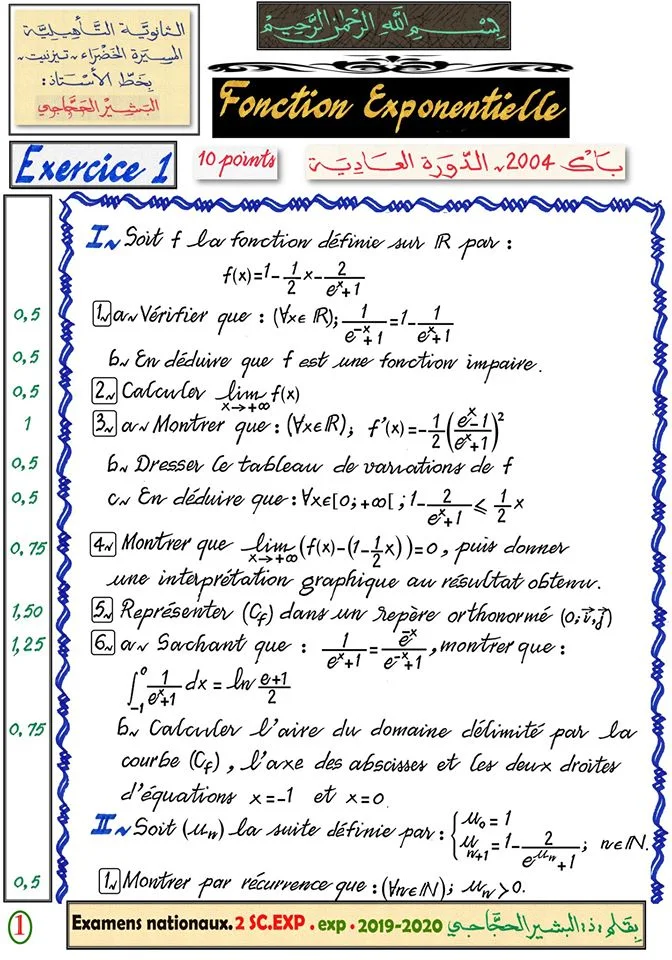 الثانوية التأهيلية
المسيرة الخضراء، تيزنيت،
بخط الأستاذ:
البشير الحجاجي
بسم الله الرحمن الرحيم
Fonction Exponentielle
Exercice 1
10 points
باك 2004، الدورة العادية
I~ Soit f la fonction définie sur ℝ par :
f(x)=1-1/2x-2/(e^x+1)
0,5 1~ a~ Vérifier que : (∀x∈ℝ); 1/(e^-x+1)=1-1/(e^x+1)
0,5 b~ En déduire que f est une fonction impaire.
0,5 2~ Calculer lim x→+∞ f(x)
1 3~ a~ Montrer que : (∀x∈ℝ); f'(x)=-1/2((e^x-1)/(e^x+1))²
0,5 b~ Dresser le tableau de variations de f
0,5 c~ En déduire que : ∀x∈[0;+∞[ ; 1-2/(e^x+1) ≤ 1/2 x
0,75 4~ Montrer que lim x→+∞ (f(x)-(1-1/2x))=0, puis donner
une interprétation graphique au résultat obtenu.
1,50 5~ Représenter (Cf) dans un repère orthonormé (0,i⃗,j⃗)
1,25 6~ a~ Sachant que : 1/(e^x+1)=e^-x/(e^-x+1), montrer que :
∫_-1^0 1/(e^x+1) dx = ln (e+1)/2
0,75 b~ Calculer l'aire du domaine délimité par la
courbe (Cf), l'axe des abscisses et les deux droites
d'équations x=-1 et x=0
II~ Soit (un) la suite définie par : { u0 = 1
un+1 = 1-2/(e^un+1) ; n∈ℕ.
0,5 1~ Montrer par récurrence que : (∀n∈ℕ); un>0.
1
Examens nationaux. 2 SC.EXP . exp . 2019-2020 بقلم ذ: البشير الحجاجي